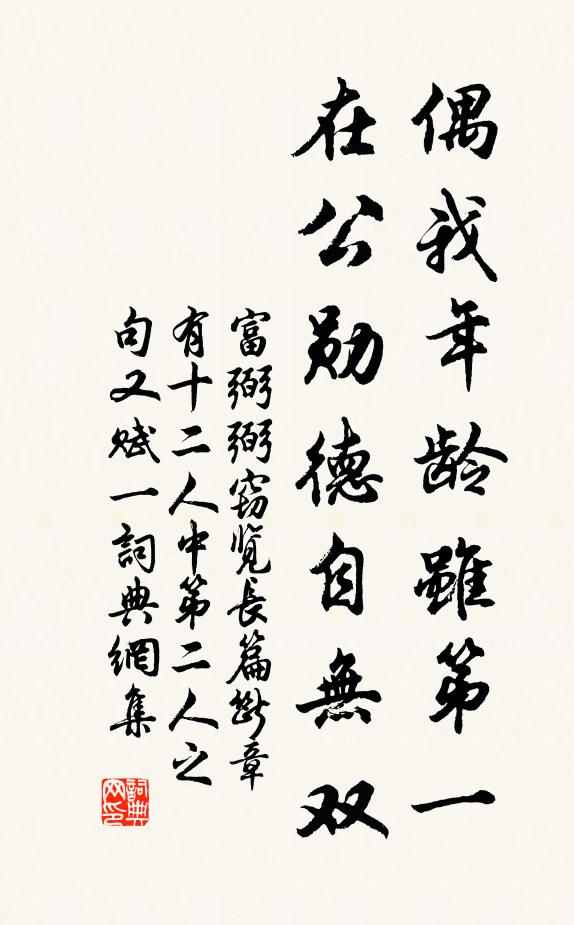 偶我年龄雖第一
在公勋德自無双
富弼弼窃览長篇斷章
有十二人中第二人之
句又赋一詞典網集
詞典网印